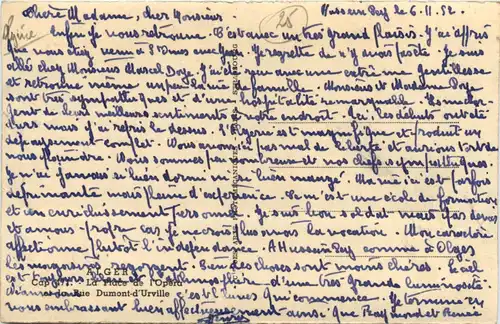 Hussein Dey le 6.11.52.
Chère Madame, cher Monsieur.
Algérie
25
Enfin je vous retrouve. C'est avec un très grand plaisir. J'ai appris
que vous étiez venus à avec Guy. Je regrette de n'y avoir passé. Je suis
allé chez Monsieur Marcel Doze. J'ai été reçu avec une extrême gentillesse
et retrouvé même un peu la vie de famille. Monsieur et Madame Doze
sont très sympathiques et d'une hospitalité remarquable. Ils me
de leurs meilleurs sentiments à votre endroit. Ici, les débuts ont été
durs mais j'ai repris le dessus. L'Algérie est magnifique et produit un
dépaysement complet. Vous avons ici pas mal de liberté et aurions tort de
nous plaindre. Nous sommes peu nombreux et nos chefs sympathiques.
Je n'ai jamais si bien dormi ni si bien mangé. Ma vie ici est parfois
déprimante mais pleine d'expérience. Le service est une école de formation
et un enrichissement personnel. Je suis bon soldat mais par devoir
et amour-propre car je ne crois plus mon caractère
affectionne plutôt l'indépendance. A Hussein Dey comme à Alger
les magasins regorgent. Bien des choses sont moins chères. Le ciel
est d'une très grande luminosité
ALGER
Cap - La Place de l'Opéra
et la Rue Dumont-d'Urville
c'est l'hiver qui commence. Je termine en
vous embrassant bien affectueusement ainsi que Raymond et Renée